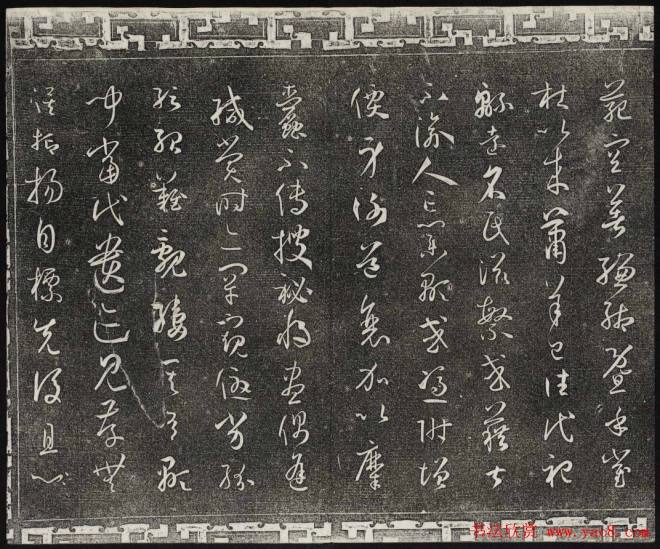 範空著縑緗暨乎崔
杜以來蕭羊已往代祀
緜遠名氏滋繁或藉甚
不渝人亡業顯或憑附增
價身謝道衰加以糜
蠹不傳搜秘將盡偶逢
緘賞時亦罕窺優劣紛
紜殆難覼縷其有顯
聞當代遺跡見存無
俟抑揚自標先後且六
书法欣赏 www.yac8.com